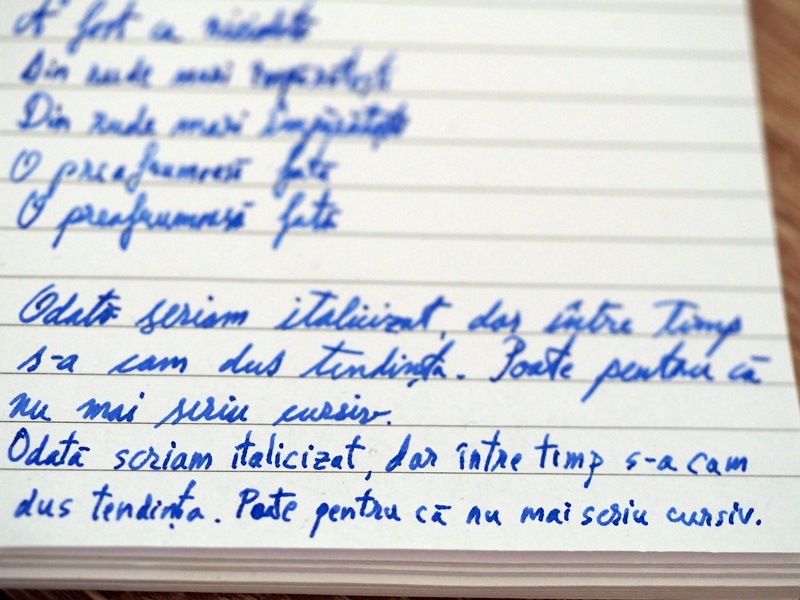 A fost ca niciodată
Din rude mari împărătești
Din rude mari împărătești
O preafrumoasă fată
O preafrumoasă fată
Odată scriam italicizat, dar între timp
s-a cam dus tendința. Poate pentru că
nu mai scriu cursiv.
Odată scriam italicizat, dar între timp s-a cam
dus tendința. Poate pentru că nu mai scriu cursiv.